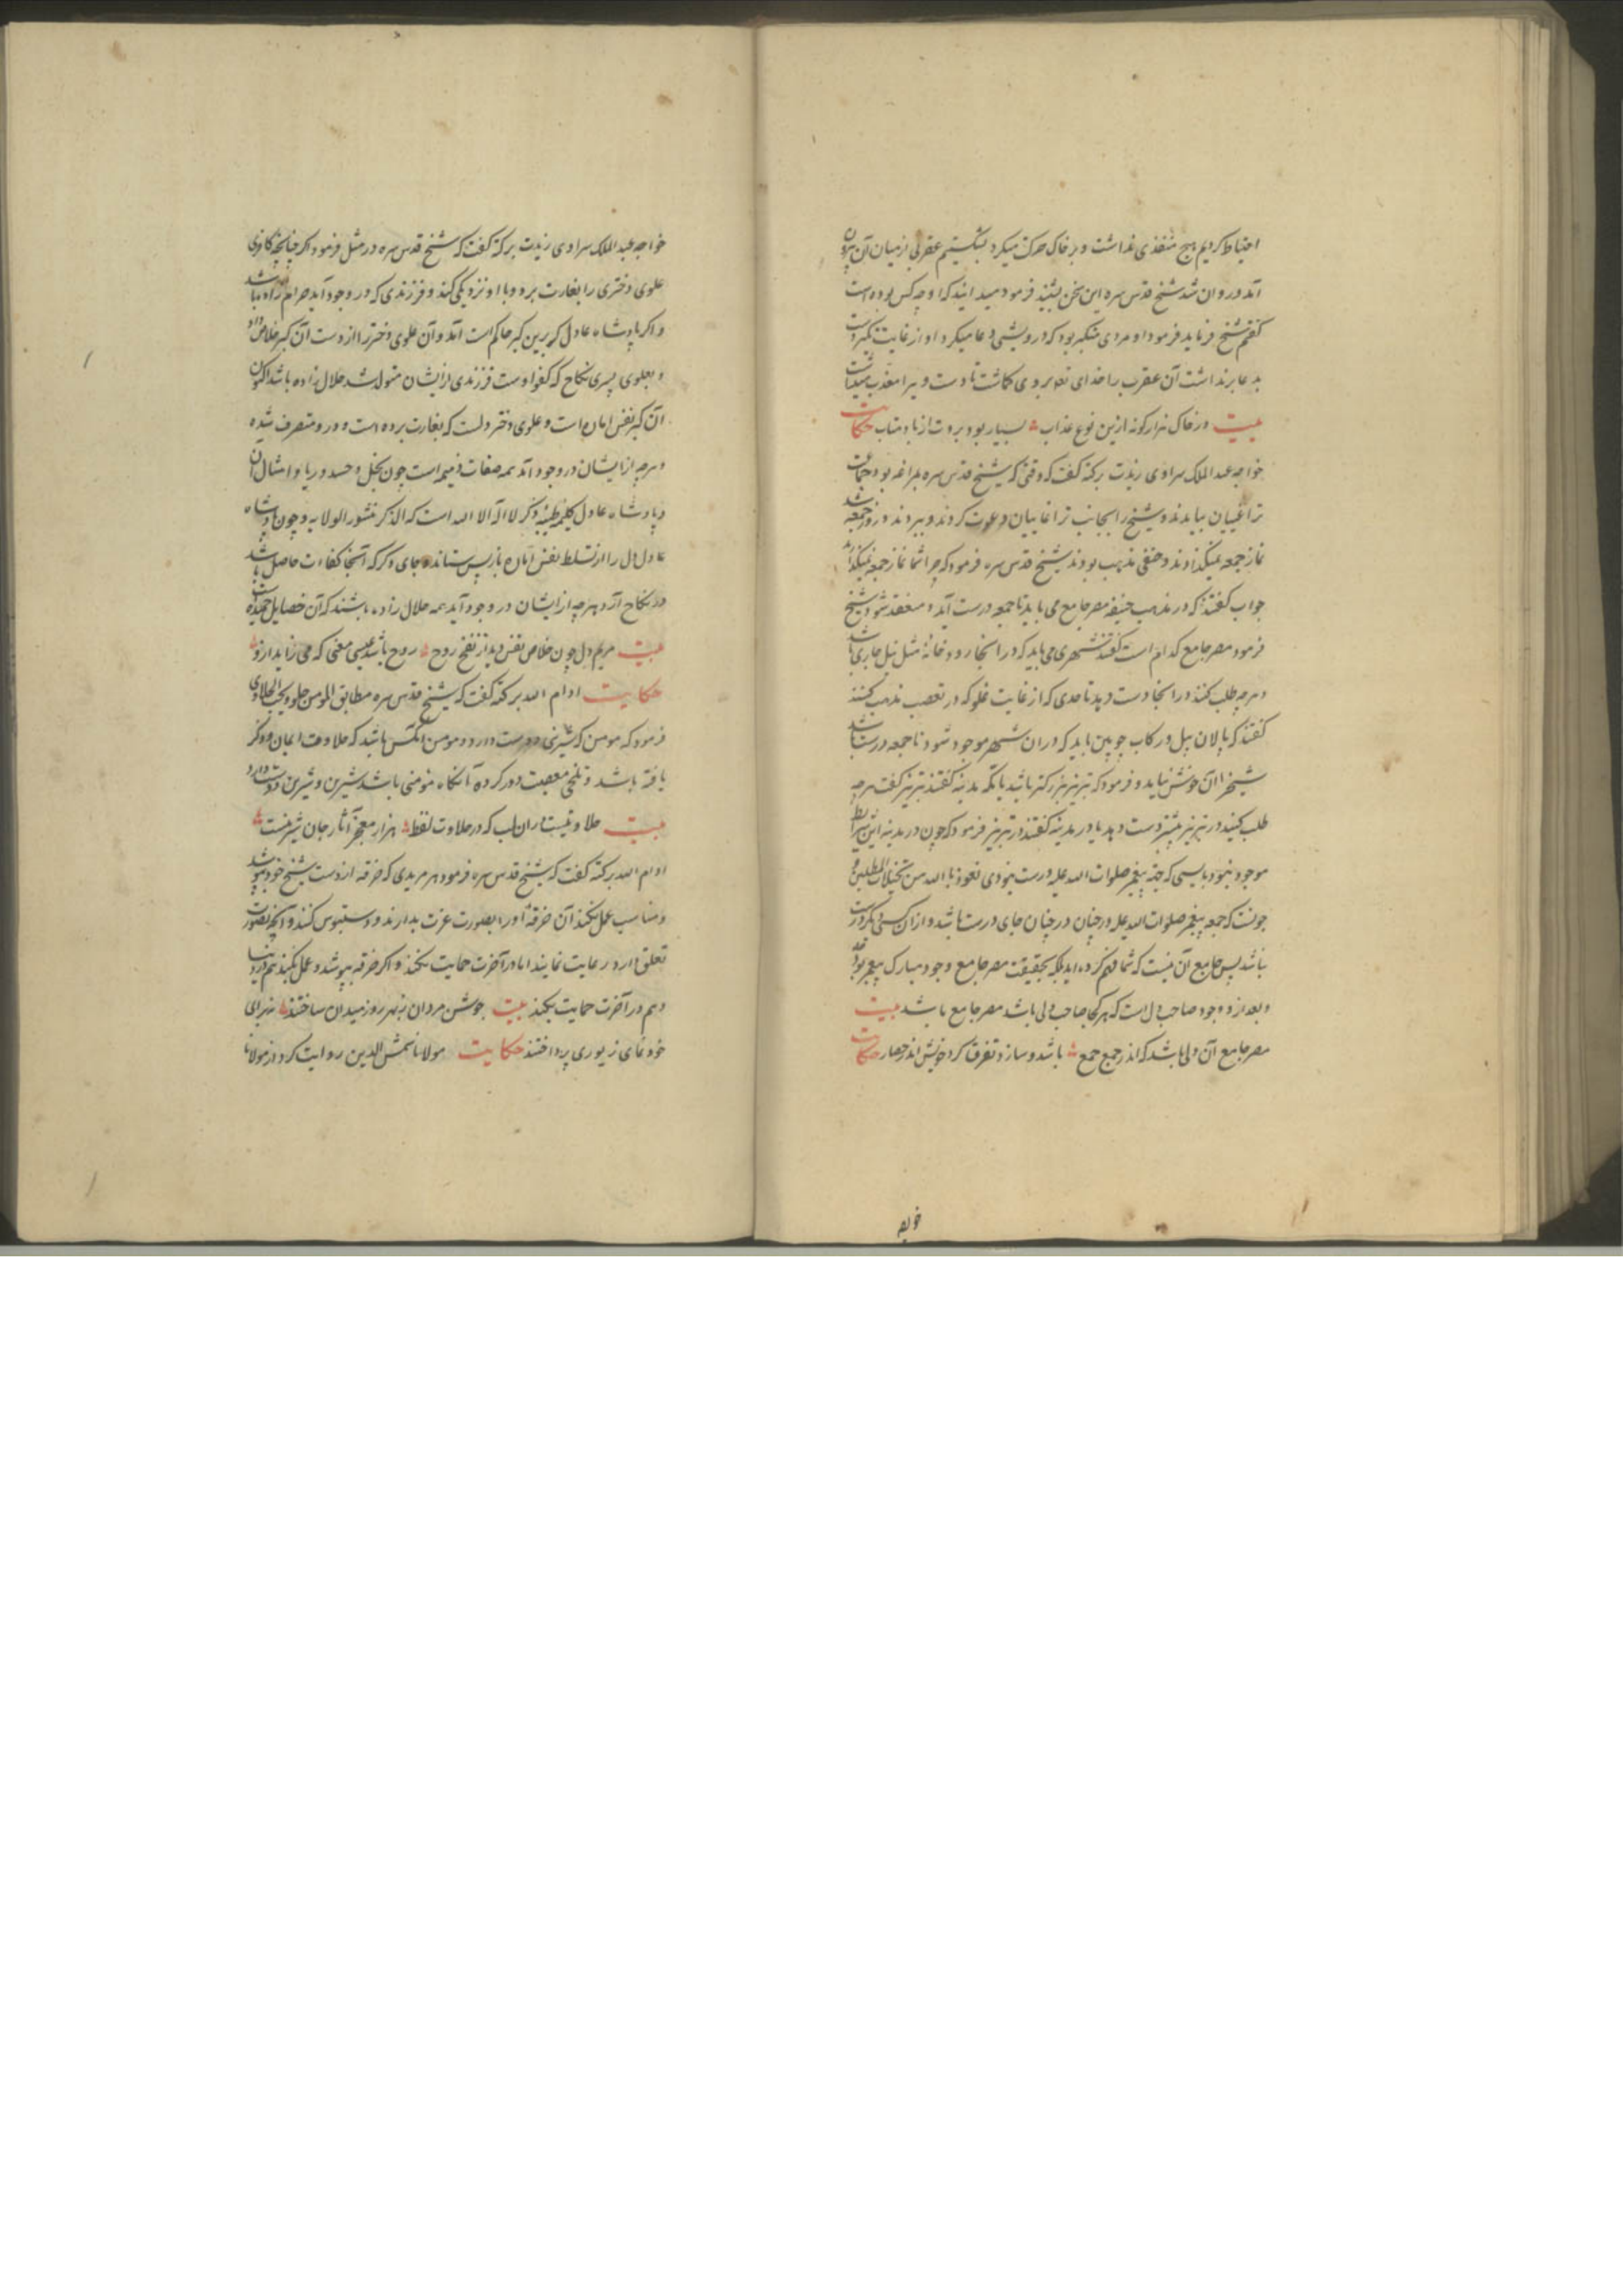 احتیاط کردیم هیچ منفذی نداشت و بر خاک حرکت میکرد بشکستیم عقربی از میان آن بیرون
آمد و روان شد شیخ قدس سره این سخن بشنید فرمود میدانید که او چه کس بوده است
گفتم شیخ فرماید فرمود او مردی متکبر بود که درویشی دعا میکرد او از غایت تکبر دست
بدعا برنداشت آن عقرب را خدای تعالی بر وی گماشت تا دست ویرا معذب میداشت
بیت در خاک هزار گونه ازین نوع عذاب بسیار بود بروت از باد متاب حکایت
خواجه عبد الملک سراوی زیدت برکته گفت که وقتی که شیخ قدس سره بمراغه بود جماعت
تراغیبیان بیامدند و شیخ را بجانب تراغاییان دعوت کردند و ببردند و روز جمعه شد
نماز جمعه نمیگذاردند و حنفی مذهب بودند شیخ قدس سره فرمود که چرا شما نماز جمعه نمیگذارید
جواب گفتند که در مذهب حنیفه مصر جامع می باید تا جمعه درست آید و منعقد شود شیخ
فرمود مصر جامع کدام است گفتند شهری می باید که در آنجا رودخانه مثل نیل جاری باشد
و هرچه طلب کنند در آنجا دست دهد تا حدی که از غایت غلو که در تعصب مذهب کنند
گفتند که پالان پیل و رکاب چوبین باید که در آن شهر موجود شود تا جمعه درست باشد
شیخ را آن خوش نیاید و فرمود که تبریز بزرگتر باشد یا مکه مدینه گفتند تبریز گفت هرچه
طلب کنید در تبریز بیشتر دست دهد یا در مدینه گفتند در تبریز فرمود که چون در مدینه این شرایط
موجود نبود بایستی که جمعه پیغمبر صلوات الله علیه درست نبودی نعوذ بالله من تخیلات المبطلین و
چونست که جمعه پیغمبر صلوات الله علیه در چنان در چنان جای درست باشد و از آن کسی دیگر درست
نباشد پس جامع آن نیست که شما فهم کرده اید بلکه بحقیقت مصر جامع وجود مبارک پیغمبر بود
و بعد ازو وجود صاحب دل است که هر کجا صاحب دلی باشد مصر جامع باشد بیت
مصر جامع آن دل باشد که اندر جمع جمع باشد و سازد تفرق گرد خویش اندر حصار حکایت
خواجه
خواجه عبد الملک سراوی زیدت برکته گفت که شیخ قدس سره در مثل فرمود اگر چنانچه کافری
علوی دختری را بغارت برد و با او نزدیکی کند و فرزندی که در وجود آید حرام زاده باشد
و اگر پادشاه عادل که برین کبر حاکم است آمد و آن علوی دختر را از دست آن کبر خلاص داد
و بعلوی پسری نکاح که کفو اوست فرزندی از ایشان متولد شد حلال زاده باشد اکنون
آن کبر نفس اماره است و علوی دختر دلست که بغارت برده است و درو متصرف شده
و هرچه از ایشان در وجود آمد همه صفات ذمیمه است چون بخل و حسد و ریا و امثال آن
و پادشاه عادل کلمه طیبه ذکر لا اله الا الله است که الذکر منشور الولایه و چون پادشاه
عادل دل را از تسلط نفس اماره بازپس ستاند و بجای دگر که آنجا کفاءت حاصل باشد
در نکاح آرد هرچه از ایشان در وجود آید همه حلال زاده باشند که آن خصایل حمیده است
بیت مریم دل چون خلاص نفس دید از نفخ روح روح باشد عیسی معنی که می زاید ازو
حکایت ادام الله برکته گفت که شیخ قدس سره مطابق المومن حلو یحب الحلاوی
فرمود که مومن که شیرینی دوست دارد و مومن آنکس باشد که حلاوت ایمان و ذکر
یافته باشد و تلخی معصیت دور کرده آنگاه مومنی باشد شیرین و شیرین دوست دارد
بیت حلاوتیست از آن لب که در حلاوت لفظ هزار معجز آثار جان شیرینست
ادام الله برکته گفت که شیخ قدس سره فرمود هر مریدی که خرقه از دست شیخ خود بپوشد
و مناسب عمل نکند آن خرقه او را بصورت عزت بدارند و دستبوس کنند و آنچه بصورت
تعلق دارد رعایت نمایند اما در آخرت حمایت نکند و اگر خرقه بپوشد و عمل بکند هم در دنیا
و هم در آخرت حمایت بکند بیت جوشن مردان بهر روز میدان ساختند نه برای
خودنمای زیوری پرداختند حکایت مولانا شمس الدین روایت کرد از مولانا